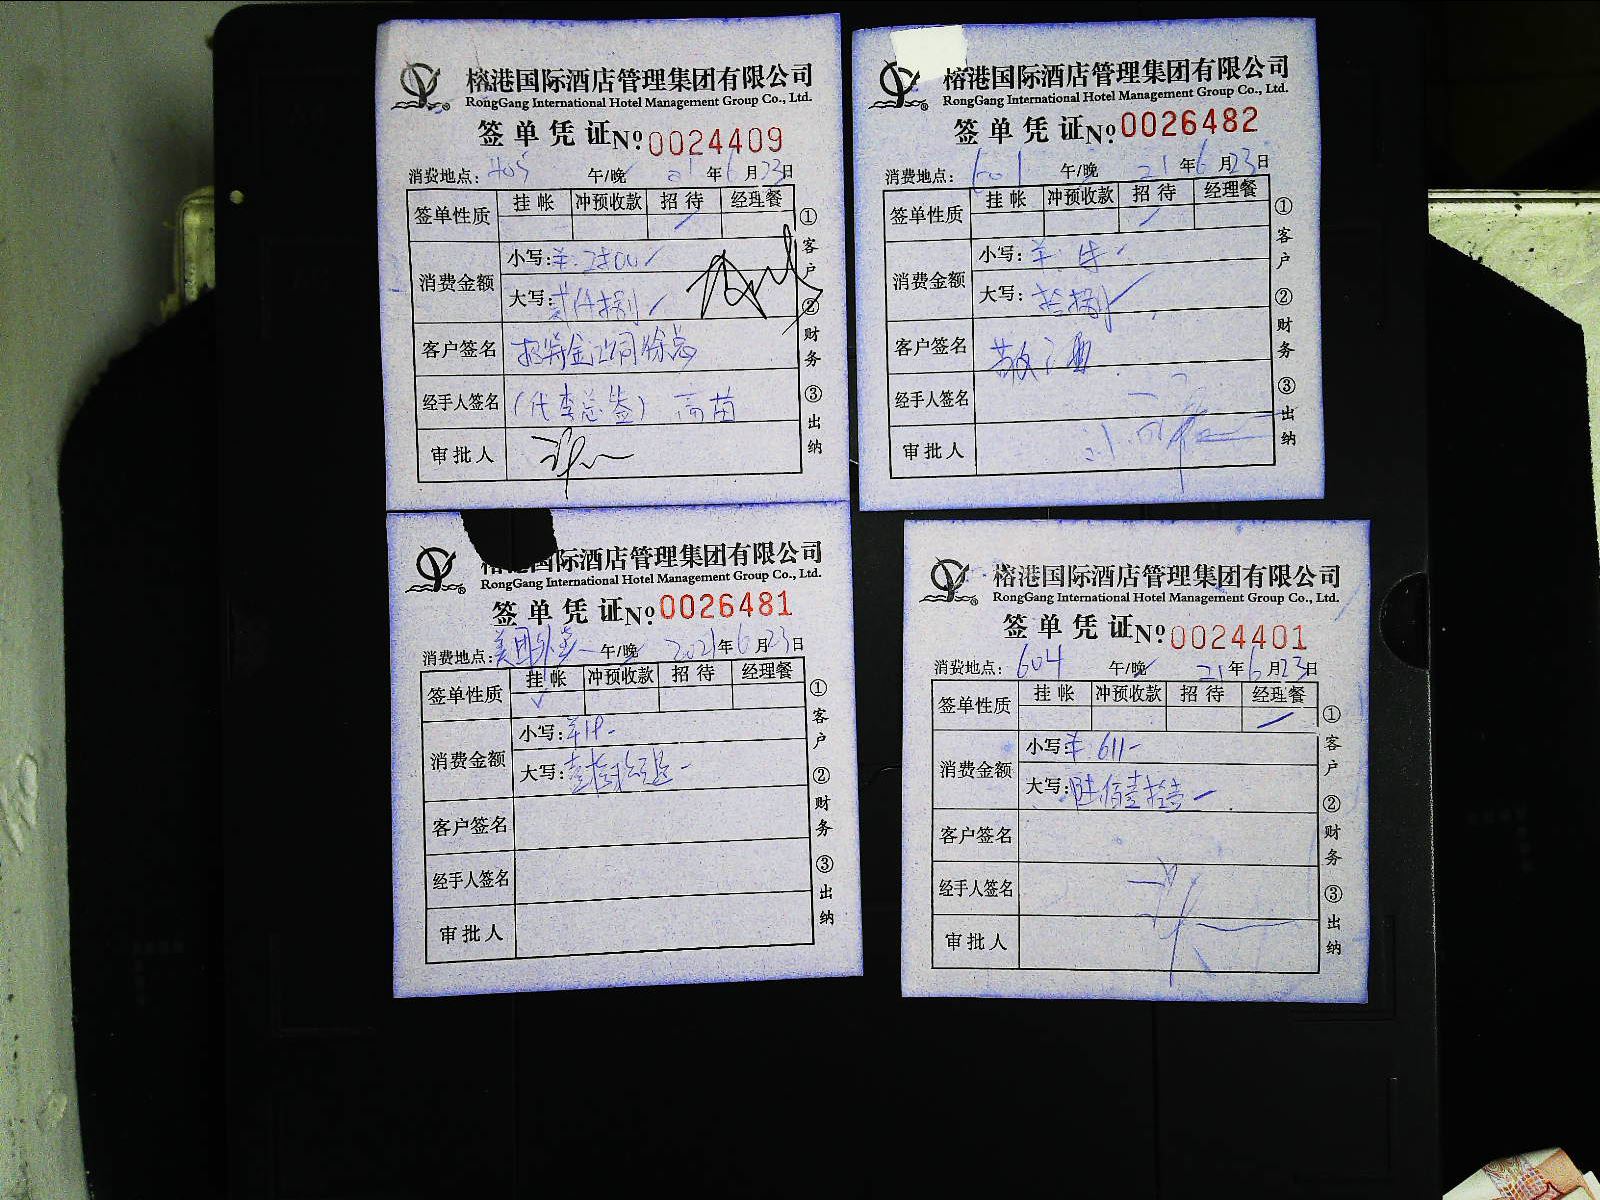 榕港国际酒店管理集团有限公司
RongGang International Hotel Management Group Co., Ltd.
签单凭证 Nº 0024409
消费地点: 405 午/晚 21年6月23日
签单性质 挂帐 冲预收款 招待 经理餐
消费金额
小写:¥:2800
大写:贰仟捌
客户签名
经手人签名 (代李总签) 高苗
审批人
①客户 ②财务 ③出纳
榕港国际酒店管理集团有限公司
RongGang International Hotel Management Group Co., Ltd.
签单凭证 Nº 0026482
消费地点: 601 午/晚 21年6月23日
签单性质 挂帐 冲预收款 招待 经理餐
消费金额
小写:¥:
大写:拾捌
客户签名 敬酒
经手人签名
审批人
①客户 ②财务 ③出纳
国际酒店管理集团有限公司
RongGang International Hotel Management Group Co., Ltd.
签单凭证 Nº 0026481
消费地点: 美团外卖 午/晚 2021年6月23日
签单性质 挂帐 冲预收款 招待 经理餐
消费金额
小写:
大写:
客户签名
经手人签名
审批人
①客户 ②财务 ③出纳
榕港国际酒店管理集团有限公司
RongGang International Hotel Management Group Co., Ltd.
签单凭证 Nº 0024401
消费地点: 604 午/晚 21年6月23日
签单性质 挂帐 冲预收款 招待 经理餐
消费金额
小写:¥:611-
大写:陆佰壹拾壹
客户签名
经手人签名
审批人
①客户 ②财务 ③出纳